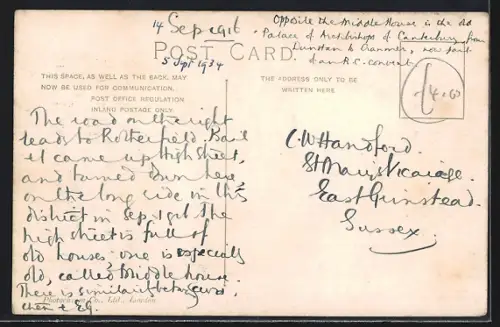 14 Sep 1916
5 Sept 1934
Opposite the Middle House is the old
Palace of Archbishops of Canterbury from
Dunstan to Cranmer, now part
of an R.C. convent.
POST CARD.
THIS SPACE, AS WELL AS THE BACK, MAY
NOW BE USED FOR COMMUNICATION.
POST OFFICE REGULATION
INLAND POSTAGE ONLY.
THE ADDRESS ONLY TO BE
WRITTEN HERE
£4.00
The road on the right
leads to Rotherfield.
I came up High Street,
and turned down here
on the long ride in this
district in Sep. The
high street is full of
old houses: one is especially
old, called Middle house.
There is similarity between
them & E.G.
Photochrom Co., Ltd., London
C. W. Handford.
St Mary's Vicarage.
East Grinstead.
Sussex.